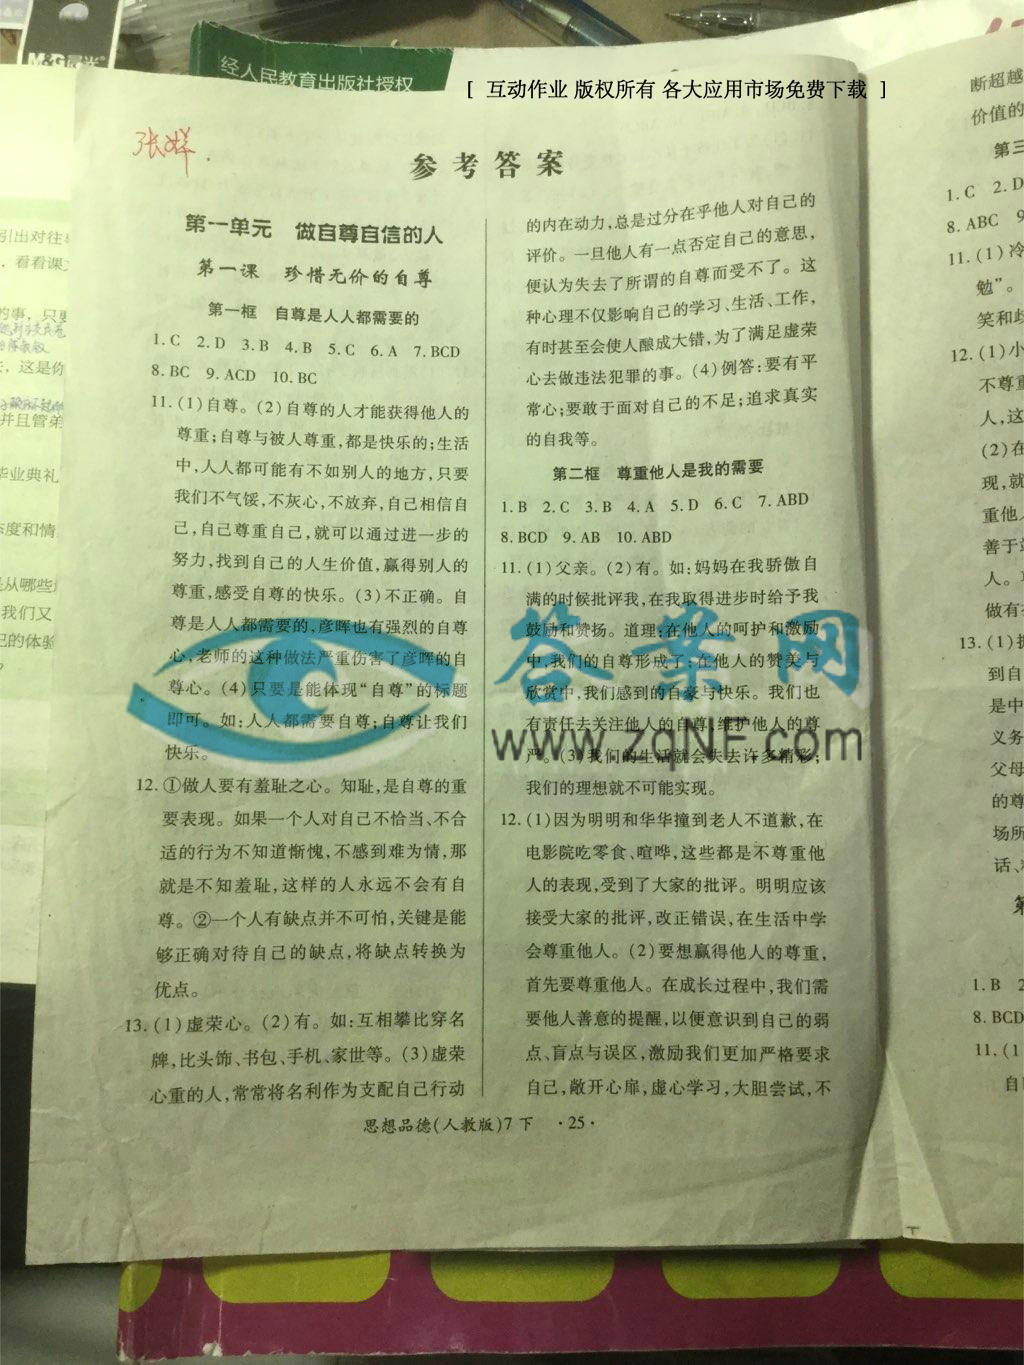 M&G晨光
经人民教育出版社授权
[ 互动作业 版权所有 各大应用市场免费下载 ]
参考答案
第一单元 做自尊自信的人
第一课 珍惜无价的自尊
第一框 自尊是人人都需要的
1. C 2. D 3. B 4. B 5. C 6. A 7. BCD
8. BC 9. ACD 10. BC
11. (1)自尊。(2)自尊的人才能获得他人的
尊重;自尊与被人尊重,都是快乐的;生活
中,人人都可能有不如别人的地方,只要
我们不气馁,不灰心,不放弃,自己相信自
己,自己尊重自己,就可以通过进一步的
努力,找到自己的人生价值,赢得别人的
尊重,感受自尊的快乐。(3)不正确。自
尊是人人都需要的,彦晖也有强烈的自尊
心,老师的这种做法严重伤害了彦晖的自
尊心。(4)只要是能体现“自尊”的标题
即可。如:人人都需要自尊;自尊让我们
快乐。
12. ①做人要有羞耻之心。知耻,是自尊的重
要表现。如果一个人对自己不恰当、不合
适的行为不知道惭愧,不感到难为情,那
就是不知羞耻,这样的人永远不会有自
尊。②一个人有缺点并不可怕,关键是能
够正确对待自己的缺点,将缺点转换为
优点。
13. (1)虚荣心。(2)有。如:互相攀比穿名
牌,比头饰、书包、手机、家世等。(3)虚荣
心重的人,常常将名利作为支配自己行动
的内在动力,总是过分在乎他人对自己的
评价。一旦他人有一点否定自己的意思,
便认为失去了所谓的自尊而受不了。这
种心理不仅影响自己的学习、生活、工作,
有时甚至会使人酿成大错,为了满足虚荣
心去做违法犯罪的事。(4)例答:要有平
常心;要敢于面对自己的不足;追求真实
的自我等。
第二框 尊重他人是我的需要
1. B 2. C 3. B 4. A 5. D 6. C 7. ABD
8. BCD 9. AB 10. ABD
11. (1)父亲。(2)有。如:妈妈在我骄傲自
满的时候批评我,在我取得进步时给予我
鼓励和赞扬。道理:在他人的呵护和激励
中,我们的自尊形成了;在他人的赞美与
欣赏中,我们感到的自豪与快乐。我们也
有责任去关注他人的自尊,维护他人的尊
严。(3)我们的生活就会失去许多精彩;
我们的理想就不可能实现。
12. (1)因为明明和华华撞到老人不道歉,在
电影院吃零食、喧哗,这些都是不尊重他
人的表现,受到了大家的批评。明明应该
接受大家的批评,改正错误,在生活中学
会尊重他人。(2)要想赢得他人的尊重,
首先要尊重他人。在成长过程中,我们需
要他人善意的提醒,以便意识到自己的弱
点、盲点与误区,激励我们更加严格要求
自己,敞开心扉,虚心学习,大胆尝试,不
思想品德(人教版)7 下 ·25·
答案网
www.zqNF.com
断超越
价值的
第三
1. C 2. D
8. ABC
11. (1)冷
勉”。
笑和歧
12. (1)小
不尊重
人,这
(2)在
现,就
重他人
善于
人。
做有
13. (1)
到自
是中
义务
父母
的尊
场所
话、
1. B 2
8. BCD
11. (1
自
引出对往
,看看课
的事,只要
,这是你
并且管弟
毕业典礼
态度和情
是从哪些
我们又
己的体验